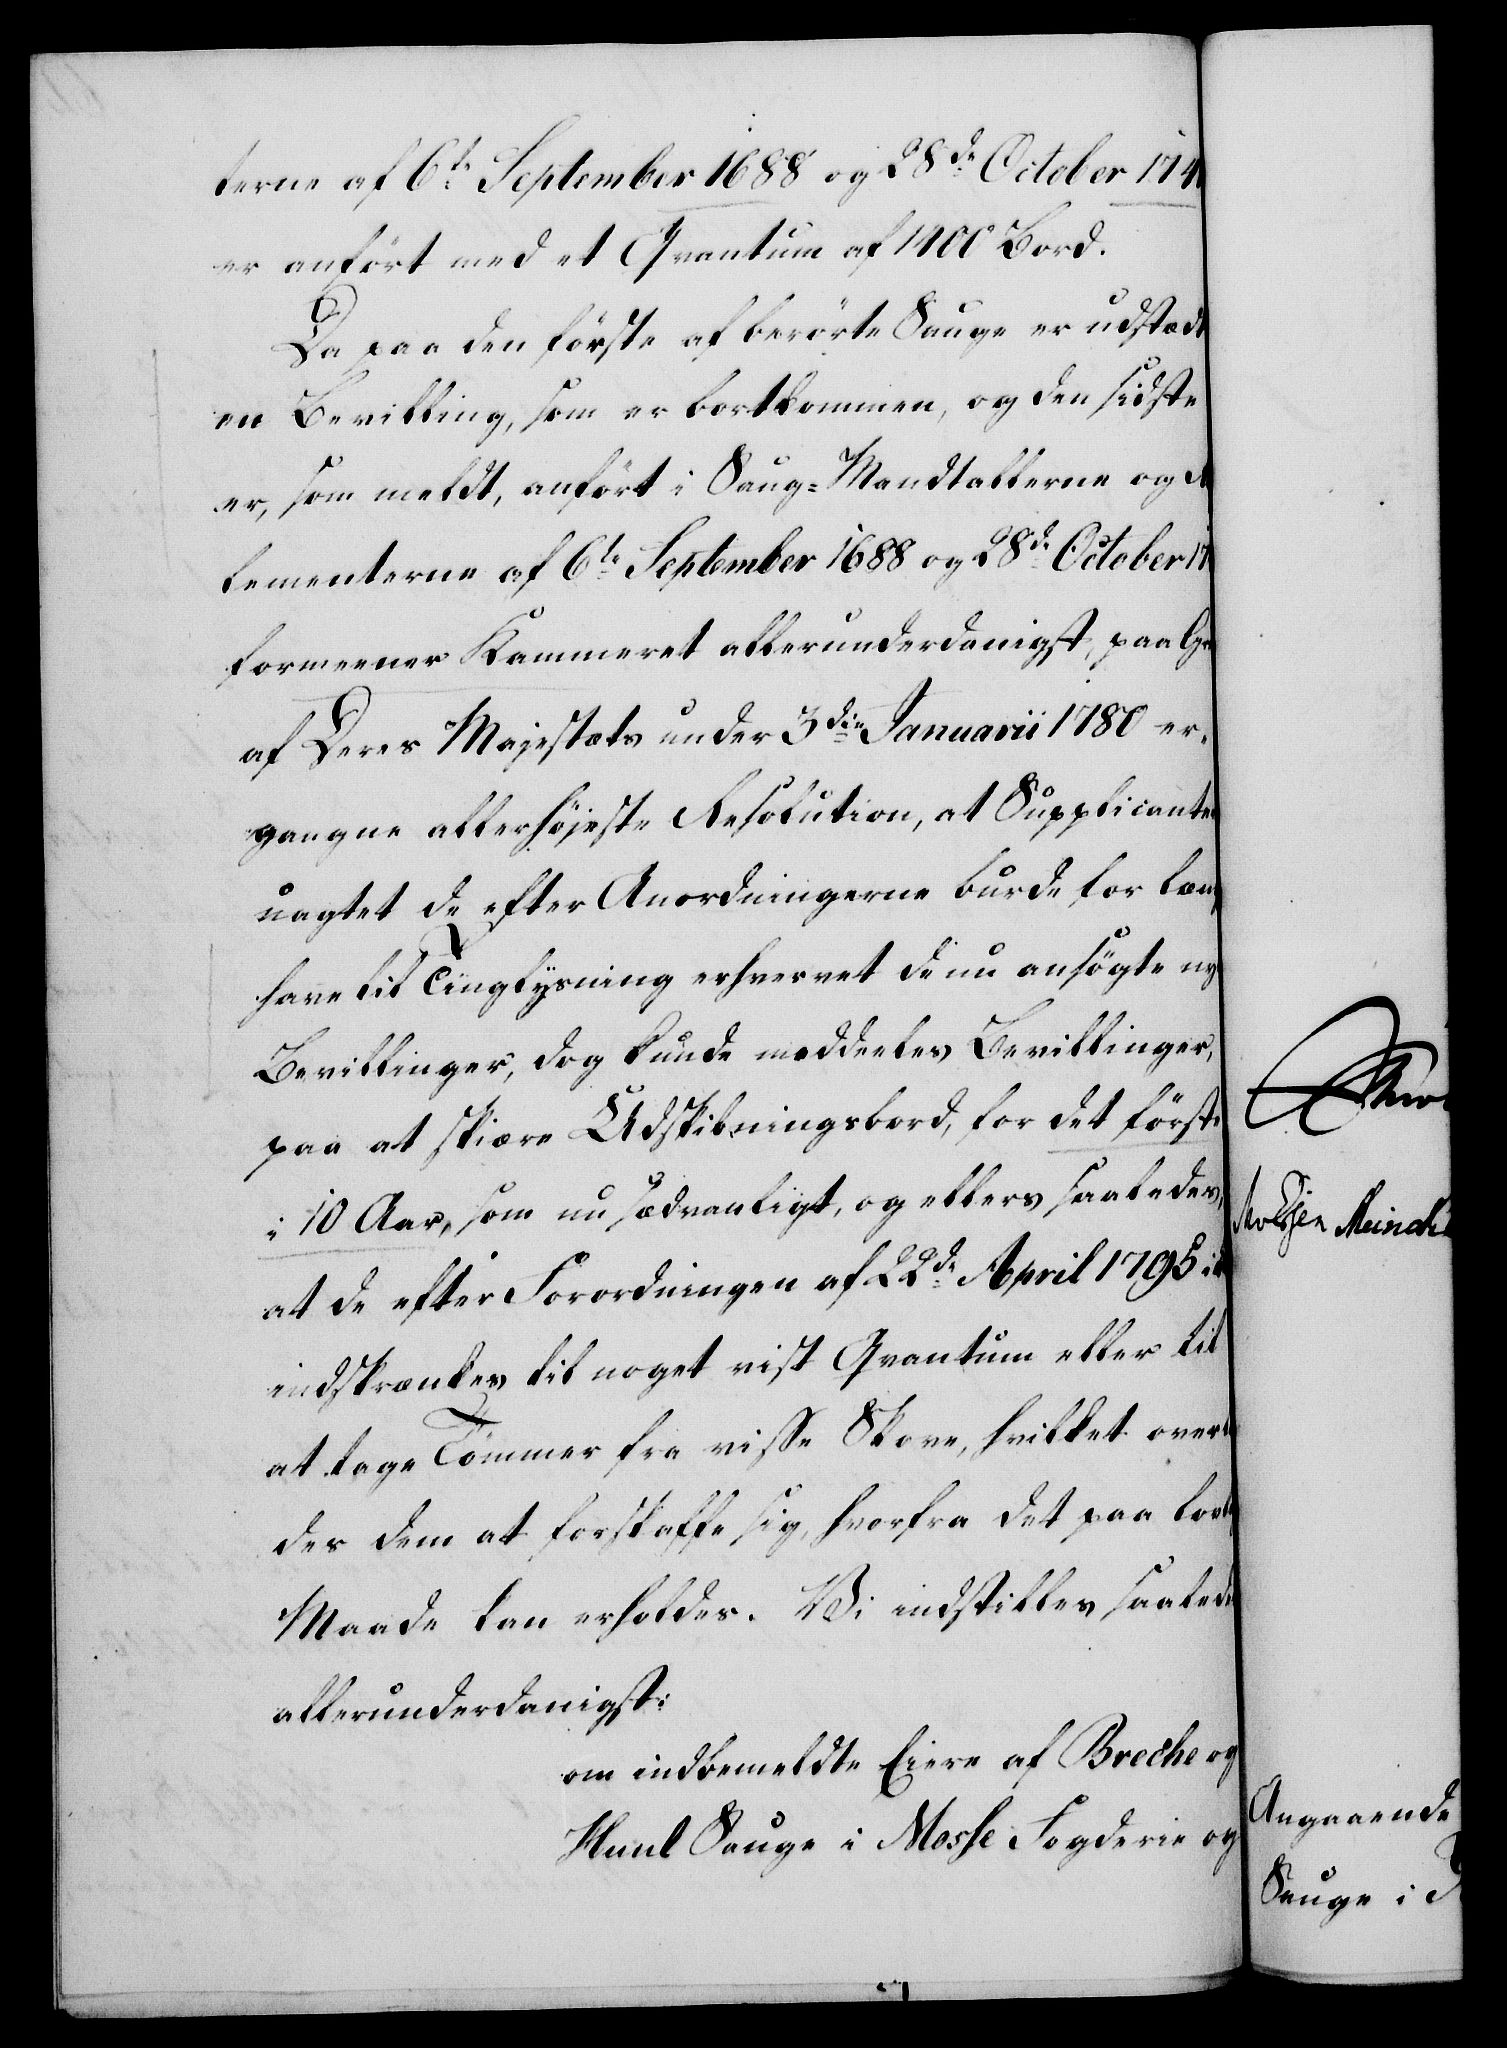 terne af 6te September 1688 og 28de October 174
er anført med et Qvantum af 1400 Bord.
Da paa den første af berørte Sauge er udstædt
en Bevilling, som er bortkommen, og den sidste
er, som meldt, anført i Saug-Mandtallerne og
lementerne af 6te September 1688 og 28de October 17
formeener Kammeret allerunderdanigst, paa
af Deres Majestæts under 3die Januarii 1780 er-
gangne allerhøjeste Resolution, at Supplicanter
uagtet de efter Anordningerne burde for
have til Tinglysning erhvervet de nu ansøgte
Bevillinger, dog kunde meddeeles Bevillinger,
paa at skiære Udskibningsbord, for det første
i 10 Aar, som nu sædvanligt, og ellers saaledes,
at de efter Forordningen af 22de April 1795
indskrænkes til noget vist Qvantum eller til
at tage Tømmer fra visse Skove, hvilket over
des dem at forskaffe sig, hvorfra det paa
Maade kan erholdes. Vi indstilles saalede
allerunderdanigst:
om indbemeldte Eiere af Breche og
Huul Sauge i Mosse Fogderie og
Meinch
Angaaende
Sauge i